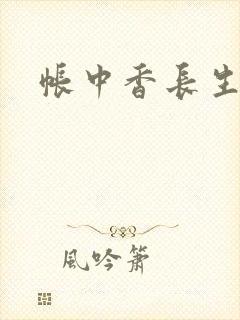 帳中香長生
風吟簫